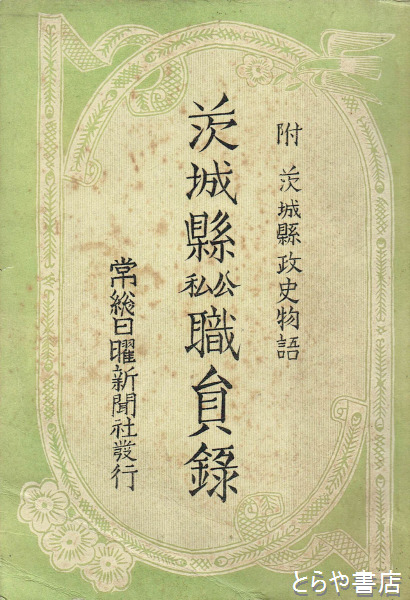 附 茨城縣政史物語
茨城縣公私職員錄
常総日曜新聞社發行
とらや書店